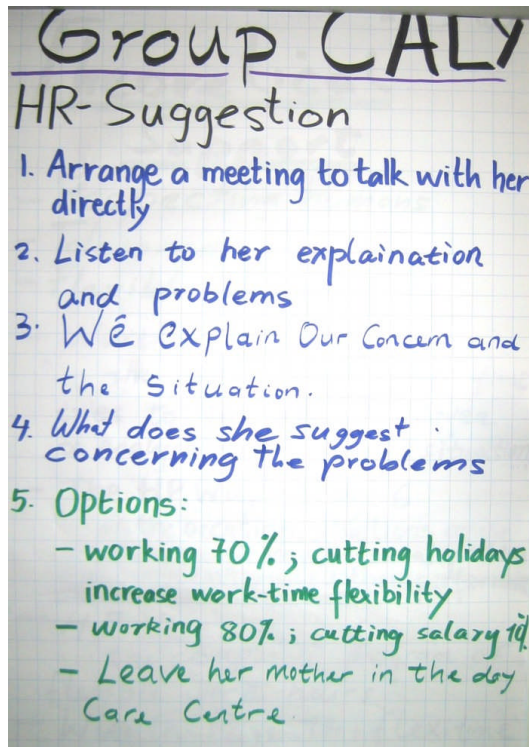 Group CALY
HR-Suggestion
1. Arrange a meeting to talk with her
directly
2. Listen to her explaination
and problems
3. We explain Our Concern and
the Situation.
4. What does she suggest
concerning the problems
5. Options:
- working 70%; cutting holidays
increase work-time flexibility
- working 80%; cutting salary
- Leave her mother in the day
Care Centre.